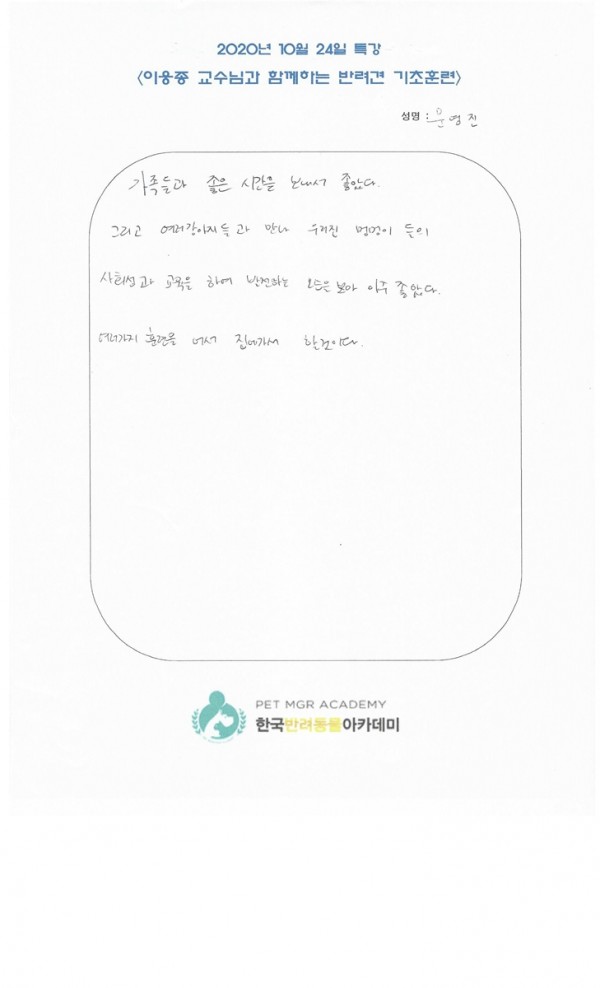 2020년 10월 24일 특강
<이웅종 교수님과 함께하는 반려견 기초훈련>
성명 : 윤영진
가족들과 좋은 시간을 보내서 좋았다.
그리고 여러강아지들과 만나 우리진 멍멍이 들의
사회성과 교육을 하여 발전하는 모든은 보아 아주 좋았다.
여러가지 훈련을 집에가서 할것이다.
PET MGR ACADEMY
한국반려동물아카데미